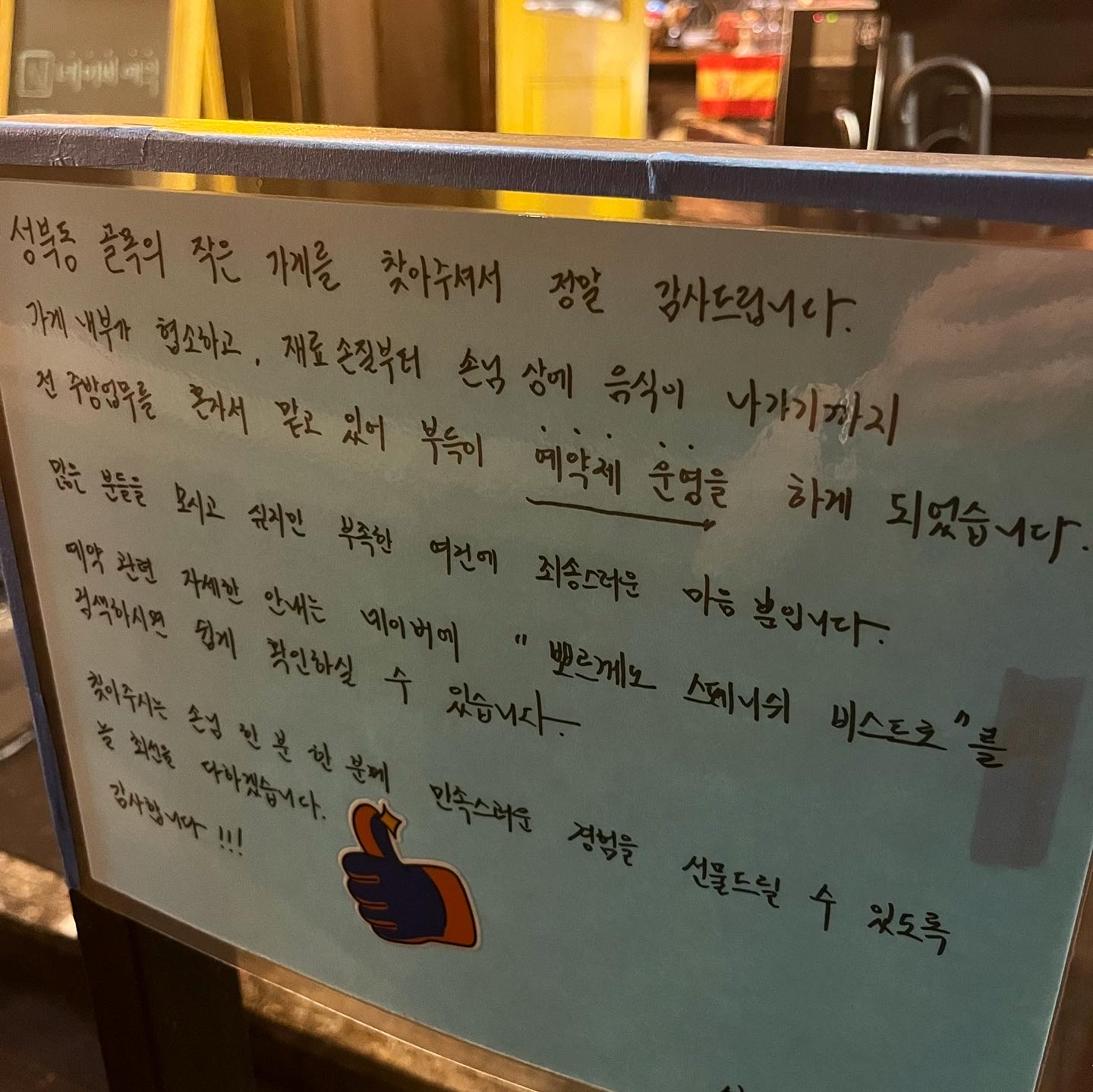 네이버 예약
성북동 골목의 작은 가게를 찾아주셔서 정말 감사드립니다.
가게 내부가 협소하고, 재료 손질부터 손님 상에 음식이 나가기까지
전 주방업무를 혼자서 맡고 있어 부득이 예약제 운영을 하게 되었습니다.
많은 분들을 모시고 싶지만 부족한 여건에 죄송스러운 마음 뿐입니다.
예약 관련 자세한 안내는 네이버에 "뽀르게노 스페니쉬 비스트로"를
검색하시면 쉽게 확인하실 수 있습니다.
찾아주시는 손님 한 분 한 분께 만족스러운 경험을 선물드릴 수 있도록
늘 최선을 다하겠습니다.
감사합니다!!!